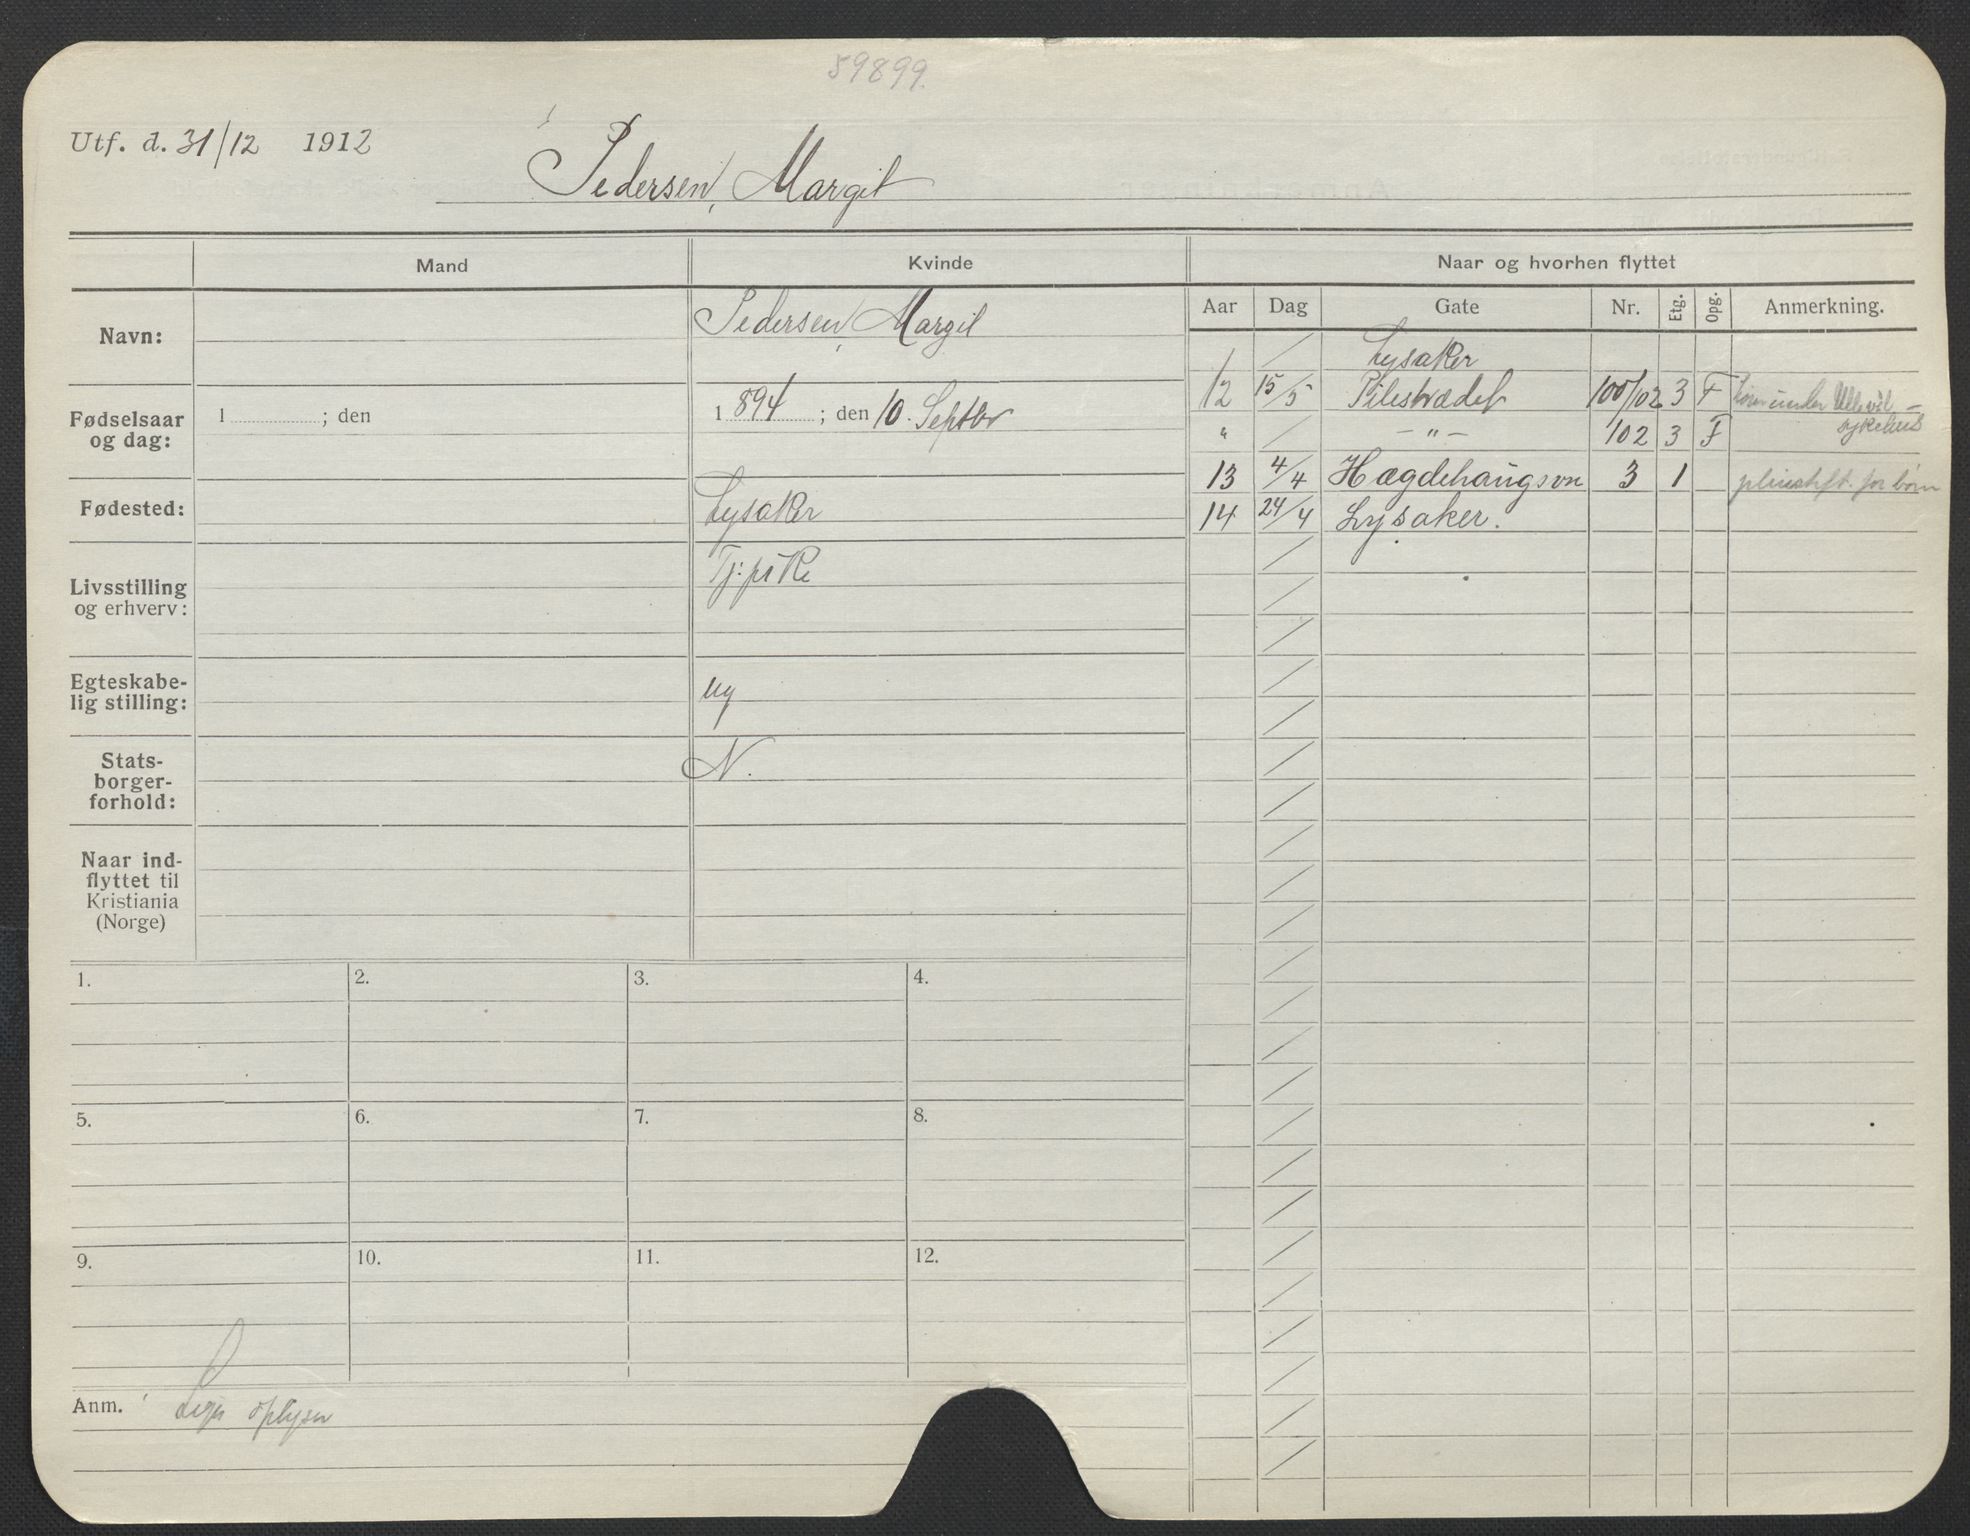 59899.
Utf. d. 31/12 1912
Pedersen, Margit
Mand
Kvinde
Naar og hvorhen flyttet
Aar Dag Gate Nr. Etg. Opg. Anmerkning.
Navn:
Pedersen, Margit
Fødselsaar
og dag:
1 ; den
1 894 ; den 10. Septbr
Fødested:
Lysaker
Livsstilling
og erhverv:
Tj: pike
Egteskabe-
lig stilling:
ug
Stats-
borger-
forhold:
N.
Naar ind-
flyttet til
Kristiania
(Norge)
Lysaker
12 15/5 Pilestrædet 100/102 3 F under Ullevål
sykehus
" / — " — 102 3 F
13 4/4 Hægdehaugsvn 3 1 for børn
14 24/4 Lysaker.
1. 2. 3. 4.
5. 6. 7. 8.
9. 10. 11. 12.
Anm. oplyser